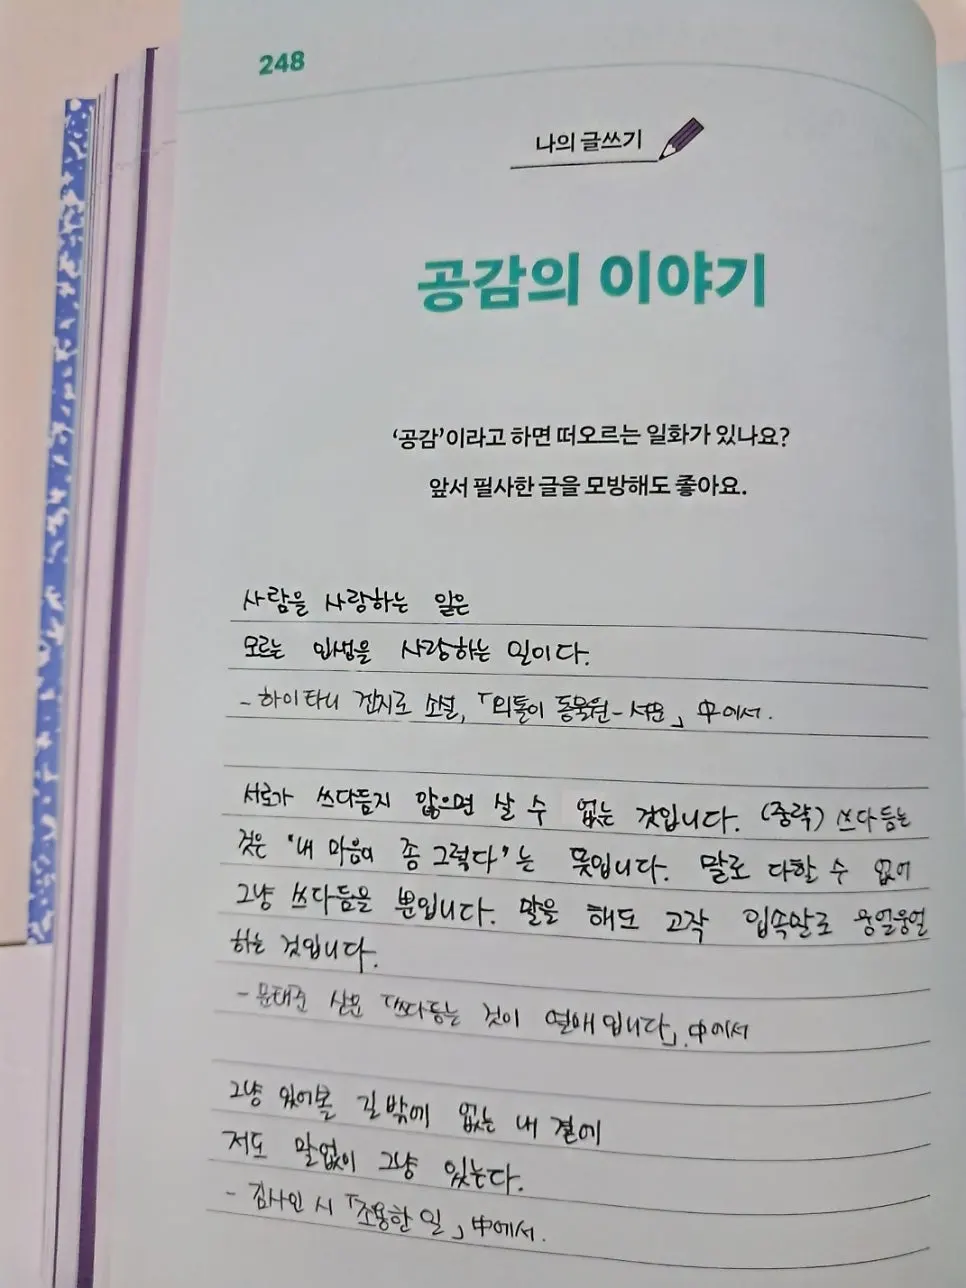 248
나의 글쓰기
공감의 이야기
'공감'이라고 하면 떠오르는 일화가 있나요?
앞서 필사한 글을 모방해도 좋아요.
사람을 사랑하는 일은
모르는 인생을 사랑하는 일이다.
- 하이타니 겐지로 소설, 「외톨이 동물원 - 서문」 中에서.
서로가 쓰다듬지 않으면 살 수 없는 것입니다. (중략) 쓰다듬는
것은 '내 마음이 좀 그렇다'는 뜻입니다. 말로 다할 수 없어
그냥 쓰다듬을 뿐입니다. 말을 해도 고작 입속말로 웅얼웅얼
하는 것입니다.
- 문태준 산문 「쓰다듬는 것이 열애입니다」 中에서
그냥 있어볼 길밖에 없는 내 곁에
저도 말없이 그냥 있는다.
- 김사인 시 「조용한 일」 中에서.